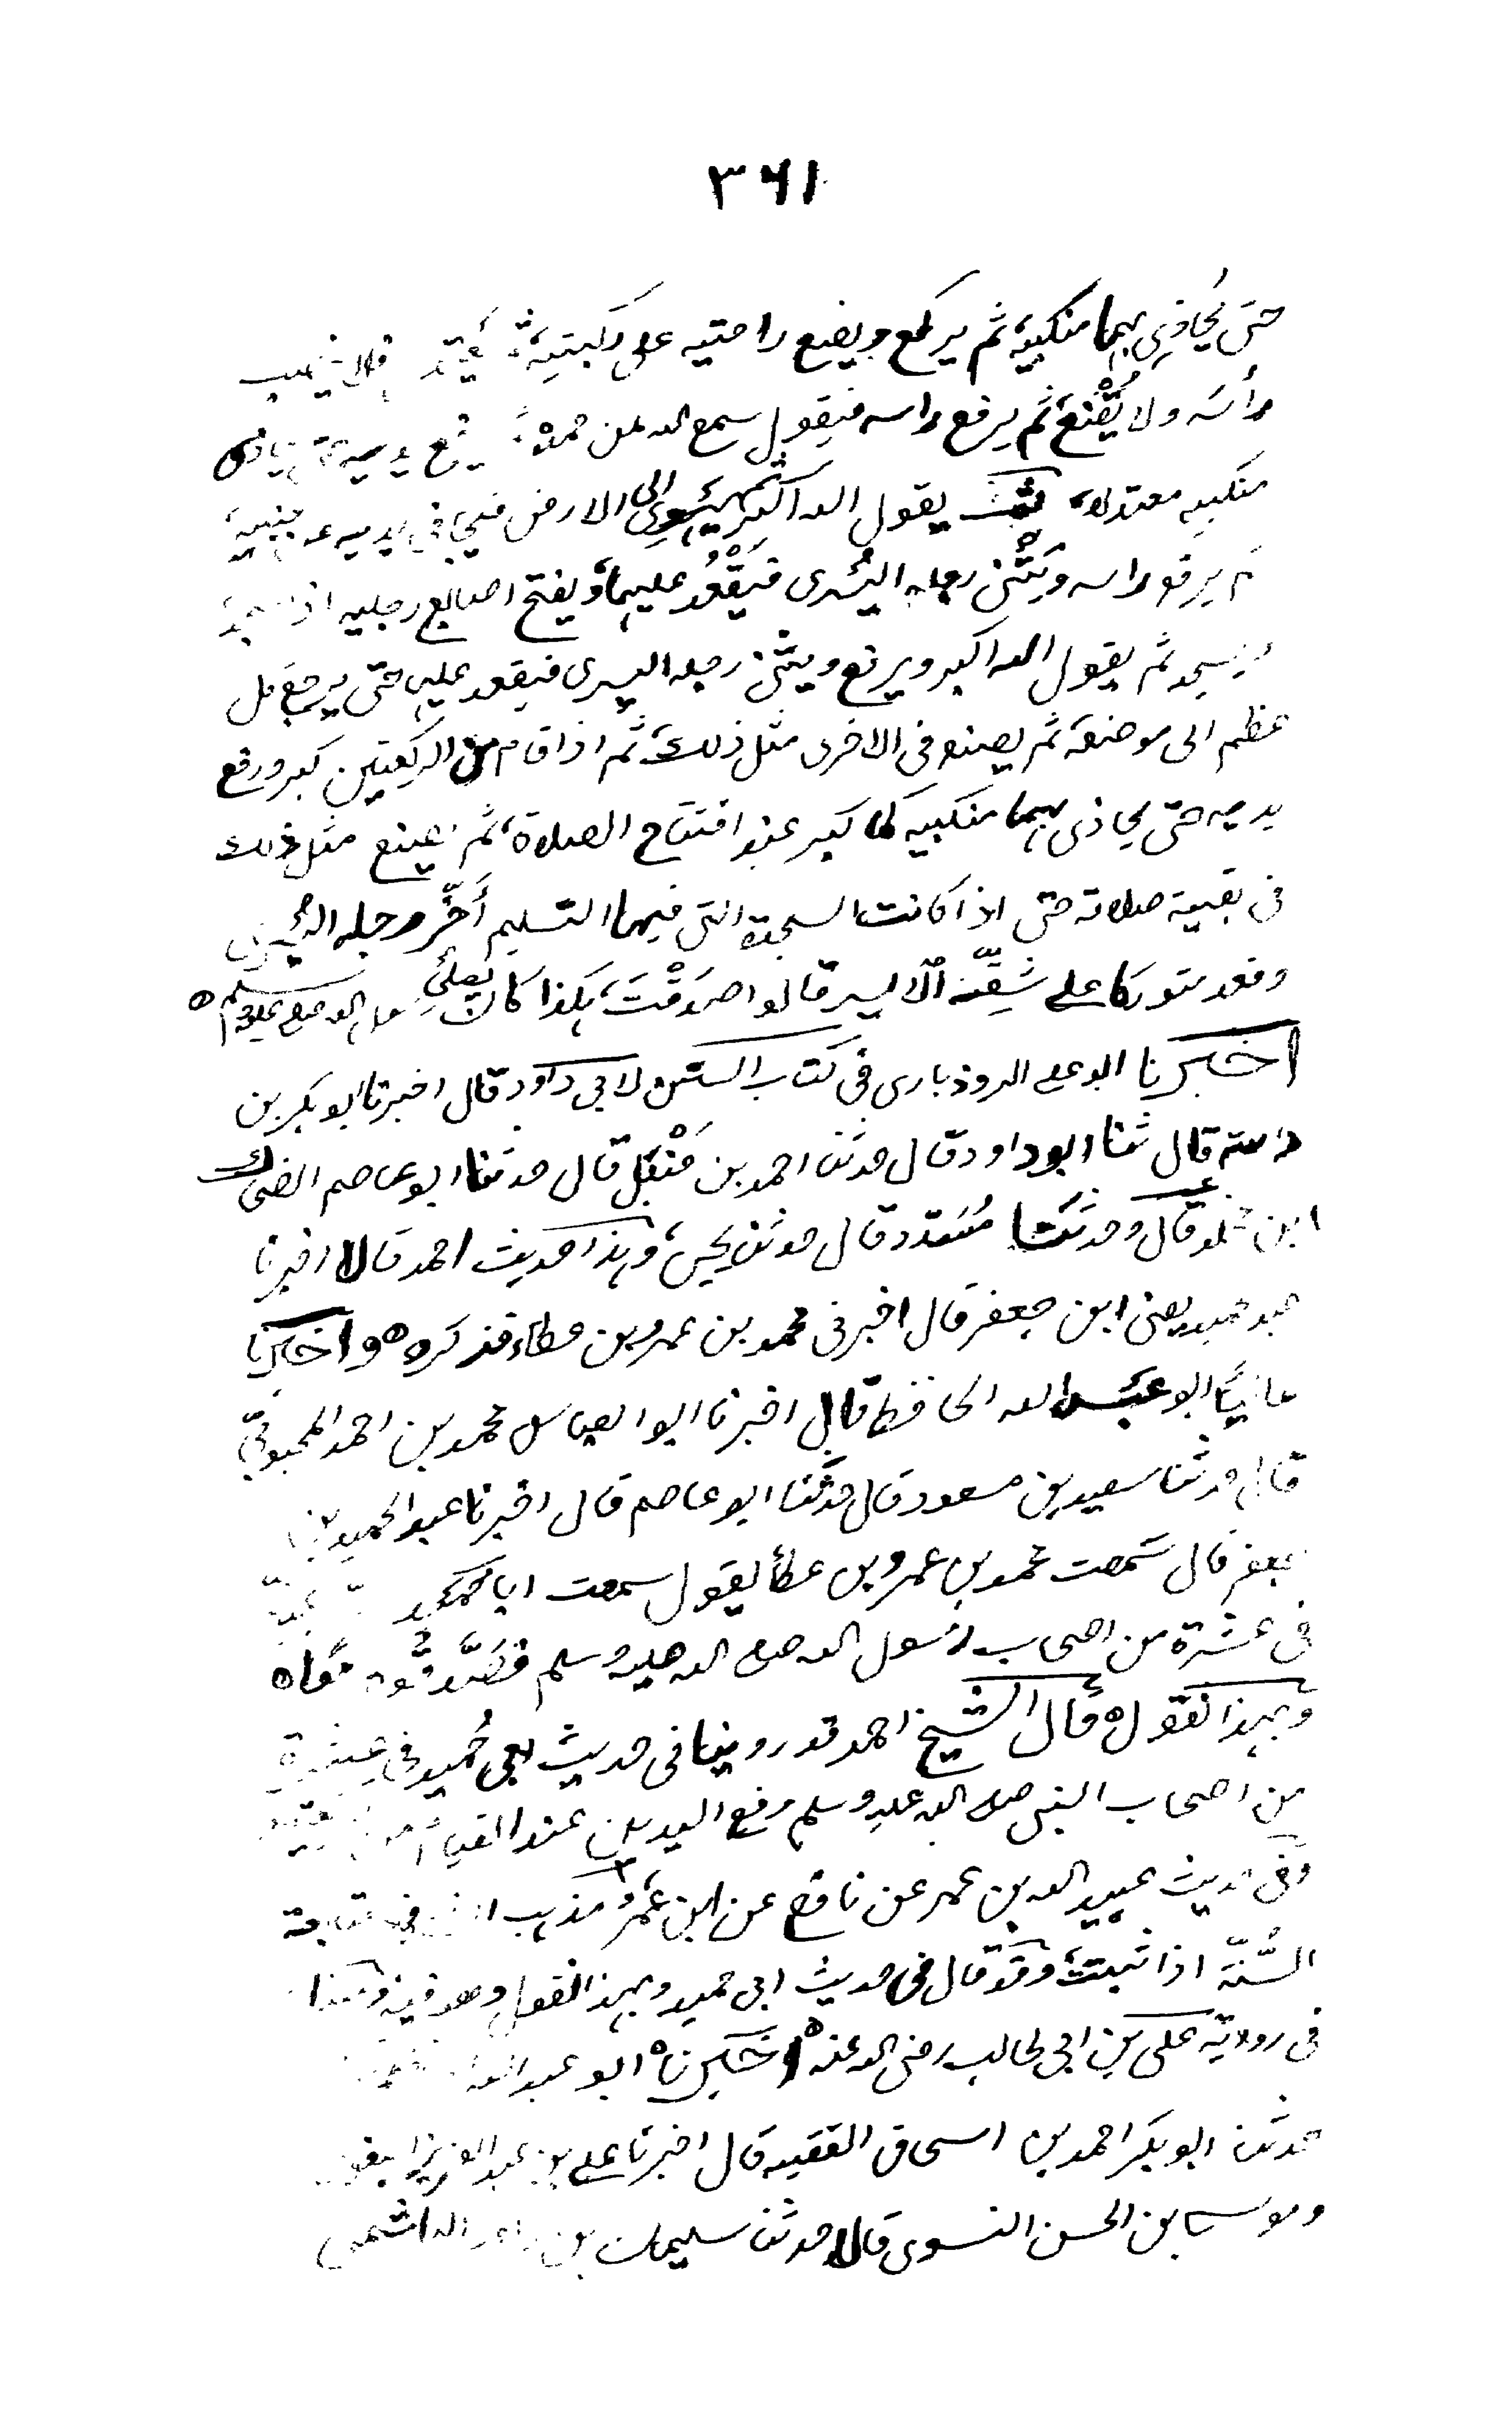 ٣٦١
حتى يُحاذِى بهما منكبيه، ثم يركع ويضع راحتيه على ركبتيه،
رأسَه ولا يُقْنِع، ثم يرفع راسه فيقول سمع الله لمن حمده،
منكبيه معتدلا، ثم يقول الله اكبر ثم يَهْوِى الى الارض فيجافى يديه عن جنبيه،
ثم يرفع راسه ويَثْنى رجله اليُسْرى فيَقْعُد عليها، ويفتح اصابع رجليه اذا سجد
ثم يسجد ثم يقول الله اكبر ويرفع ويثنى رجله اليسرى فيقعد عليها حتى يرجع كل
عظم الى موضعه ثم يصنع فى الاخرى مثل ذلك، ثم اذا قام من الركعتين كبر ورفع
يديه حتى يحاذى بهما منكبيه كما كبر عند افتتاح الصلاة، ثم يصنع مثل ذلك
فى بقية صلاته حتى اذا كانت السجدة التى فيها التسليم أَخَّر رجله اليُسْرى
وقعد متوركا على شِقِّه الايسر قالوا صَدَقْتَ، هكذا كان يصلى رسول الله صلى الله عليه وسلم ٥
اخبرنا ابو على الروذبارى فى كتاب السنن لابى داود قال اخبرنا ابو بكر بن
داسة قال ثنا ابو داود قال حدثنا احمد بن حَنْبَل قال حدثنا ابو عاصم الضحاك
ابن مخلد ح قال وحدثنا مُسَدَّد قال حدثنا يحيى، وهذا حديث احمد قالا اخبرنا
عبد الحميد يعنى ابن جعفر قال اخبرنى محمد بن عمرو بن عطاء فذكره ٥ واخبرنا
عاليًا ابو عبد الله الحافظ قال اخبرنا ابو العباس محمد بن احمد المحبوبى
قال حدثنا سعيد بن مسعود قال حدثنا ابو عاصم قال اخبرنا عبد الحميد بن
جعفر قال سمعت محمد بن عمرو بن عطاء يقول سمعت ابا حميد
فى عشرة من اصحاب رسول الله صلى الله عليه وسلم فصَدَّقُوه
وبهذا نقول ٥ قال الشيخ احمد قد روينا فى حديث ابى حُميد فى عشرة
من اصحاب النبى صلى الله عليه وسلم رفع اليدين عند القيام من
وفى حديث عبيد الله بن عمر عن نافع عن ابن عُمَر، ومذهب الشافعى متابعة
السُّنّة اذا ثبتت، وقد قال فى حديث ابى حميد وبهذا نقول وهو فيه وكذا
فى رواية على بن ابى طالب رضى الله عنه ٥ اخبرناه ابو عبد الله
حدثنا ابو بكر احمد بن اسحاق الفقيه قال اخبرنا على بن عبد العزيز
وموسى بن الحسن النسوى قالا حدثنا سليمان بن داود الهاشمى